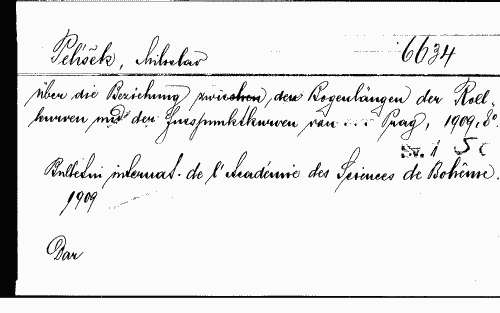 Pelíšek, Miloslav 6634
über die Beziehung zwischen den Bogenlängen der Roll-
kurven und der Fusspunktkurven von ... Prag, 1909, 8°
Sv. 1 5 c
Bulletin internat. de l'Académie des Sciences de Bohême.
1909
Dar